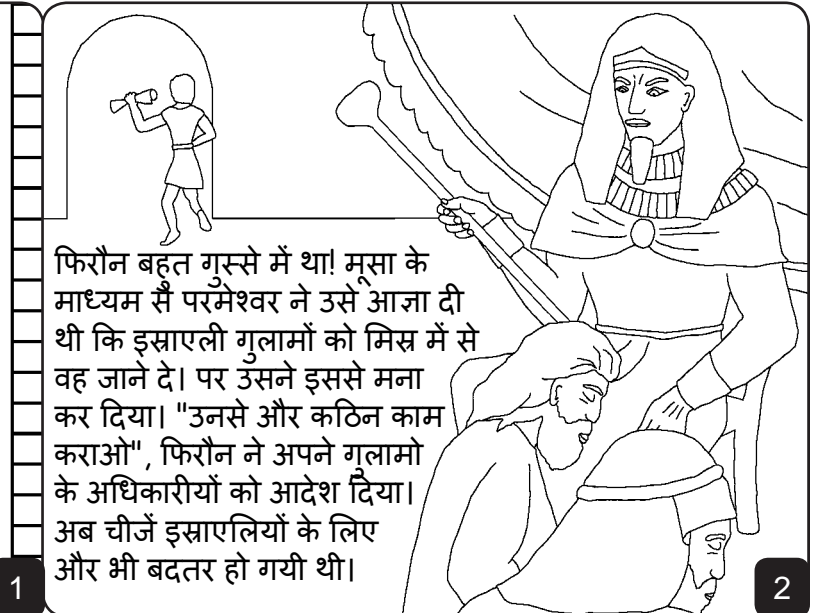 फिरौन बहुत गुस्से में था! मूसा के
माध्यम से परमेश्वर ने उसे आज्ञा दी
थी कि इस्राएली गुलामों को मिस्र में से
वह जाने दे। पर उसने इससे मना
कर दिया। "उनसे और कठिन काम
कराओ", फिरौन ने अपने गुलामो
के अधिकारीयों को आदेश दिया।
अब चीजें इस्राएलियों के लिए
और भी बदतर हो गयी थी।
1
2